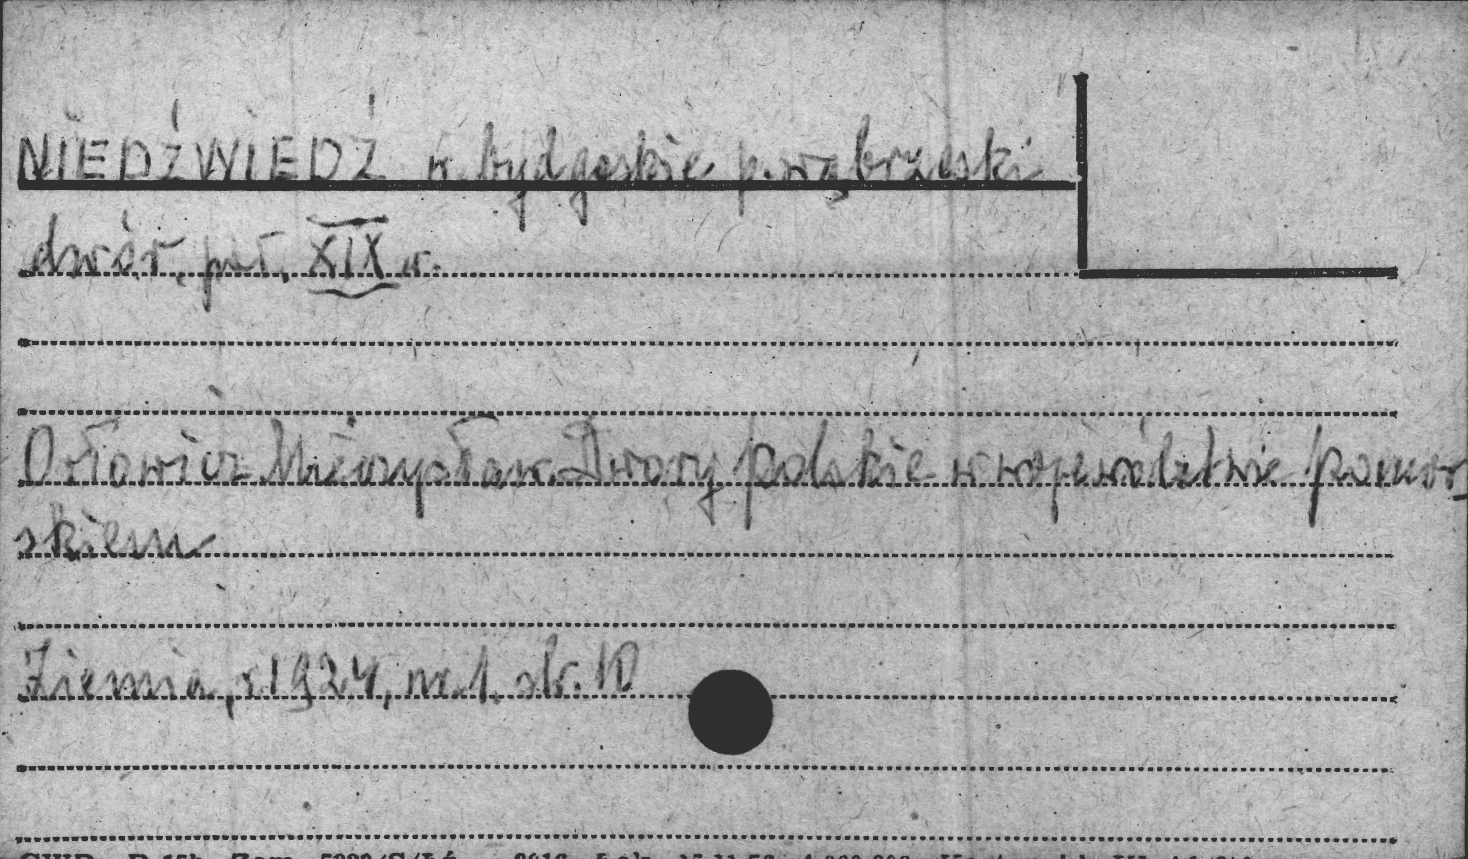 NIEDŹWIEDŹ w. bydgoskie p. wąbrzeski
dwór, poł. XIX w.
Orłowicz Mieczysław. Dwory polskie w województwie pomor
skiem
Ziemia, r 1924, nr. 1. str. 10